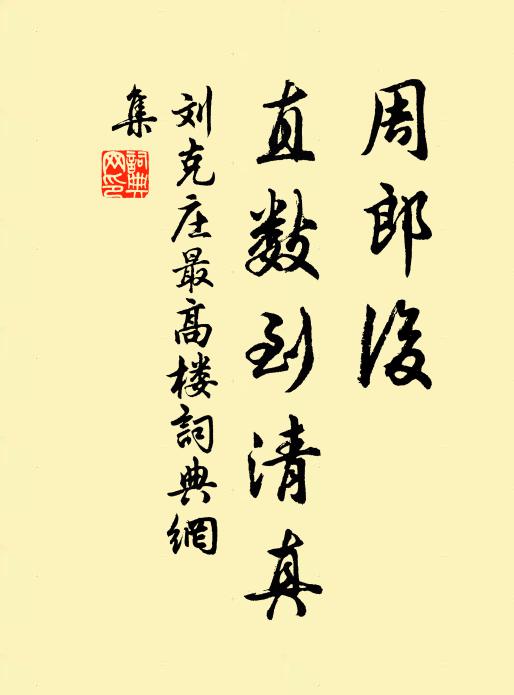 周郎後
直数到清真
刘克庄最高楼詞典網
集
詞典网印